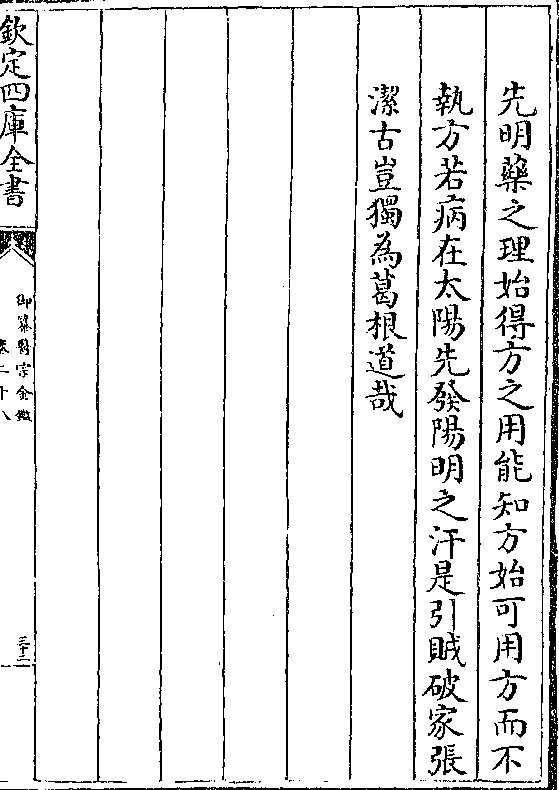 先明藥之理始得方之用能知方始可用方而不
執方若病在太陽先發陽明之汗是引賊破家張
潔古豈獨為葛根道哉
欽定四庫全書
御纂醫宗金鑑
卷二十八
三十二